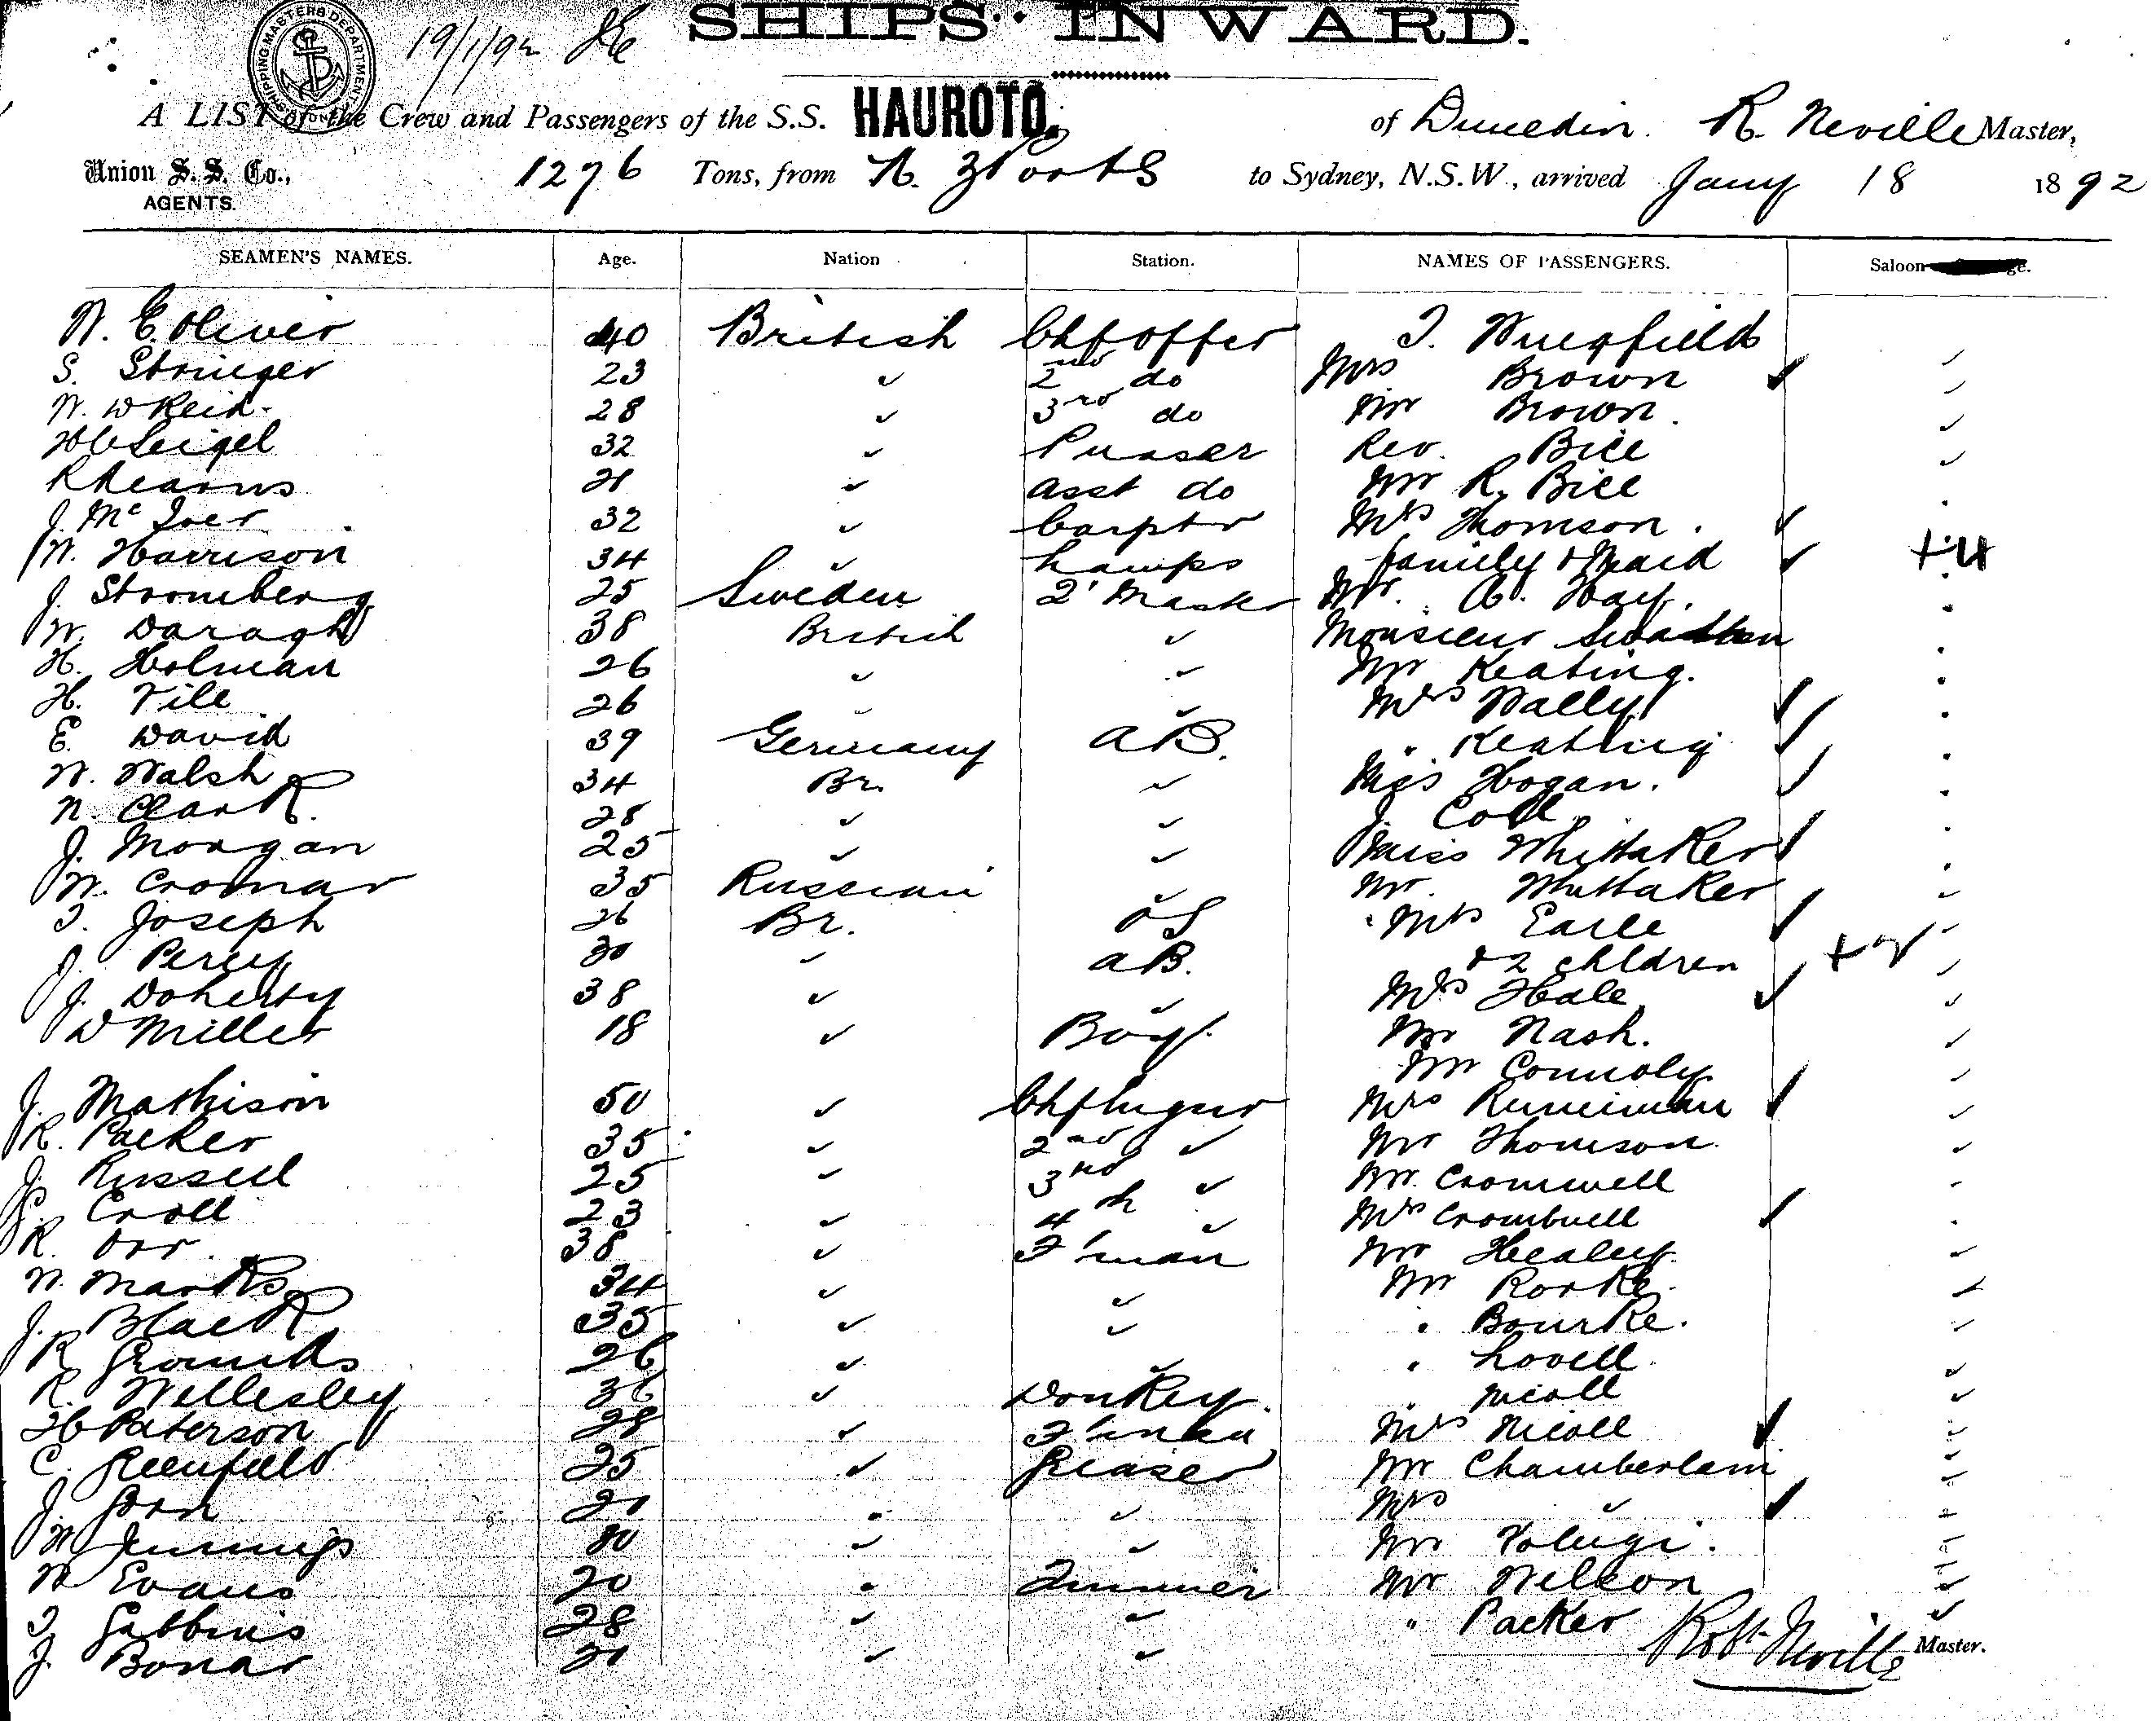 SHIPPING MASTERS DEPARTMENT
19/1/92
SHIPS INWARD.
A LIST of the Crew and Passengers of the S.S. HAUROTO, of Dunedin. R. Neville Master,
Union S. S. Co., AGENTS. 1276 Tons, from N. Z Ports to Sydney, N.S.W., arrived Jany 18 1892
SEAMEN'S NAMES. Age. Nation Station. NAMES OF PASSENGERS. Saloon
W. E. Oliver 40 British Chf Offer T. Wingfield
S. Stringer 23 " 2nd do Mrs Brown
W. W Reid 28 " 3rd do Mr Brown.
Seigel 32 " Purser Rev. Bice
R Kearns 21 " Asst do Mr R. Bice
J. Mc Iver 32 " Carptr Mrs Thomson.
W. Harrison 34 " Lamps family & Maid +4
J. Stromberg 25 Sweden 2' Master Mr. A. Hay.
W. Daragh 38 British " Monsieur
H. Holman 26 " " Mr Keating.
H. Vill 26 " " Mrs Wally
E. David 39 Germany AB. " Keating
W. Walsh 34 Br. " Miss Hogan.
N. Clark. 28 " " J.
J. Morgan 25 " " Miss Whittaker
W. Cromar 35 Russian " Mr. Whittaker
T. Joseph 26 Br. OS Mrs Earle
J. Percy 30 " AB. & 2 chldren +2
J. Doherty 38 " " Mrs Hale
D Miller 18 " Boy. Mr Nash.
Mr Connoly
J. Mathison 50 " Chf Engnr Mrs Runciman
R. Packer 35 " 2nd " Mr Thomson.
J. Russell 25 " 3rd " Mr. Cromwell
Croll 23 " 4th " Mrs Crombwell
R. Orr. 38 " F'man Mr Healey.
W. Marks 34 " " Mr Rorke.
J. Black 35 " " " Bourke.
R Grounds 26 " " " Lovell
R. Wellesley 36 " Donkey. " Nicoll
H Paterson 28 " F'man Mrs Nicoll
C. Greenfield 25 " Greaser Mr Chamberlain
J. Gorn 21 " " Mrs "
W Jennings 30 " " Mr
W Evans 20 " Trimmer Mr Wilson
T. Gibbins 28 " " " Packer
J. Bonar 21 " " Robt Neville Master.